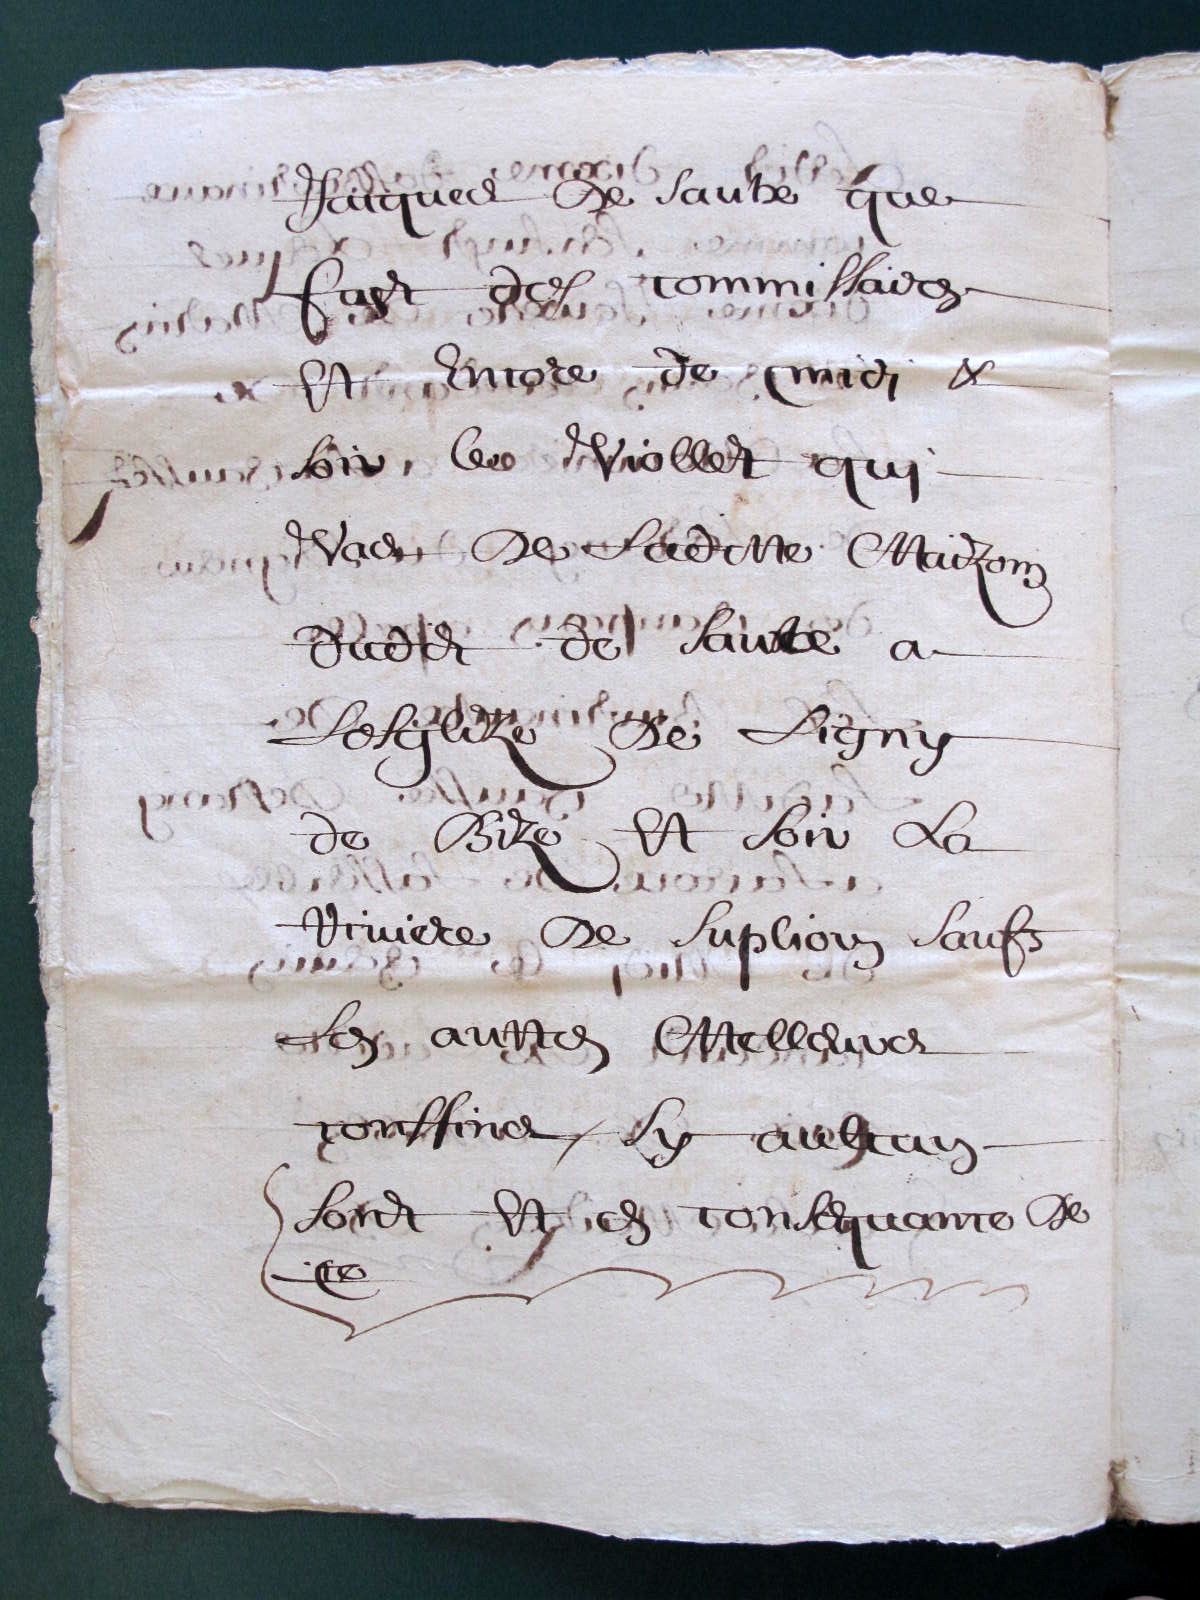 Jacques de saube que
Cast des commissaires
et Encore de midi &
soir le Viollet qui
Vact de Ladicte Maizon
dudict de saube a
Lesglize de Signy
de Bize et soir La
riviere de suplion saufs
Les auttes Melleures
conffins / sy aulcun
sont et en consequance de
ce